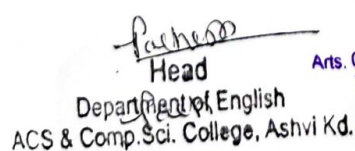 Head
Arts.
Department of English
ACS & Comp.Sci. College, Ashvi Kd.